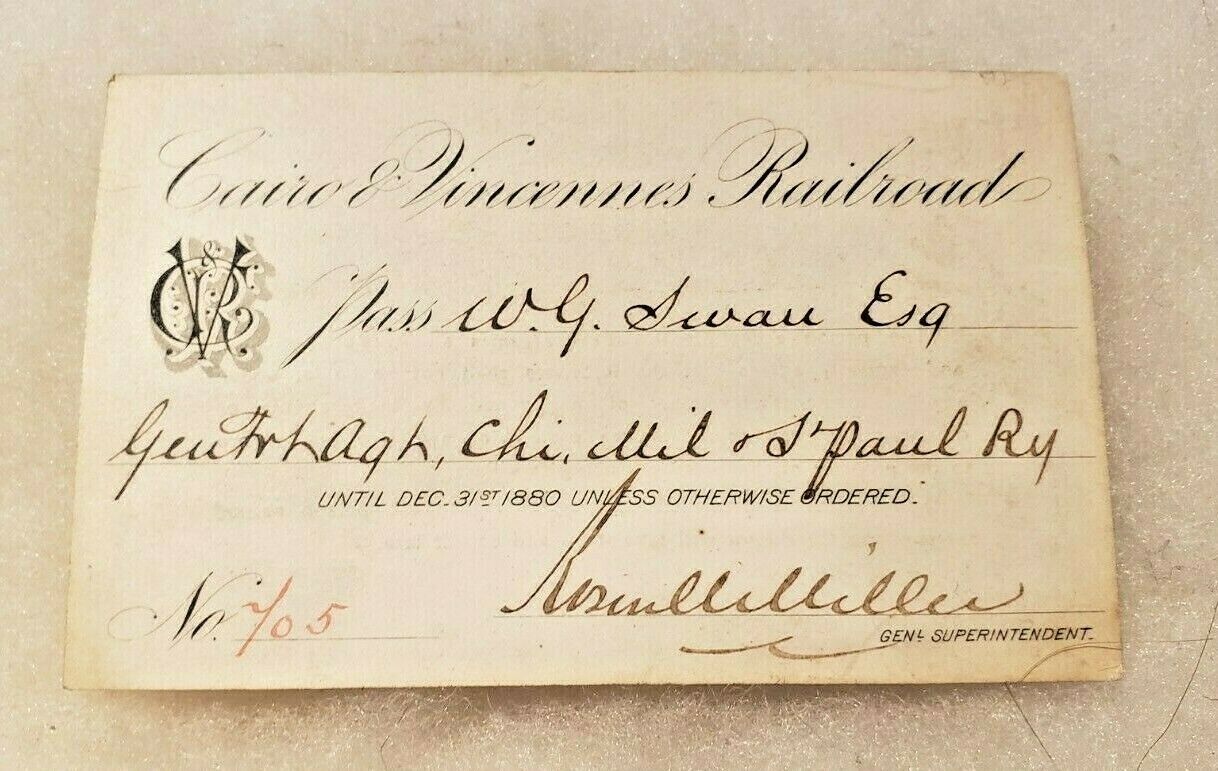 Cairo & Vincennes Railroad
C&VRR
Pass W. G. Swan Esq
Gen Frt Agt, Chi, Mil & St Paul Ry
UNTIL DEC. 31ST 1880 UNLESS OTHERWISE ORDERED.
Roswell Miller
No. 705
GENL SUPERINTENDENT.